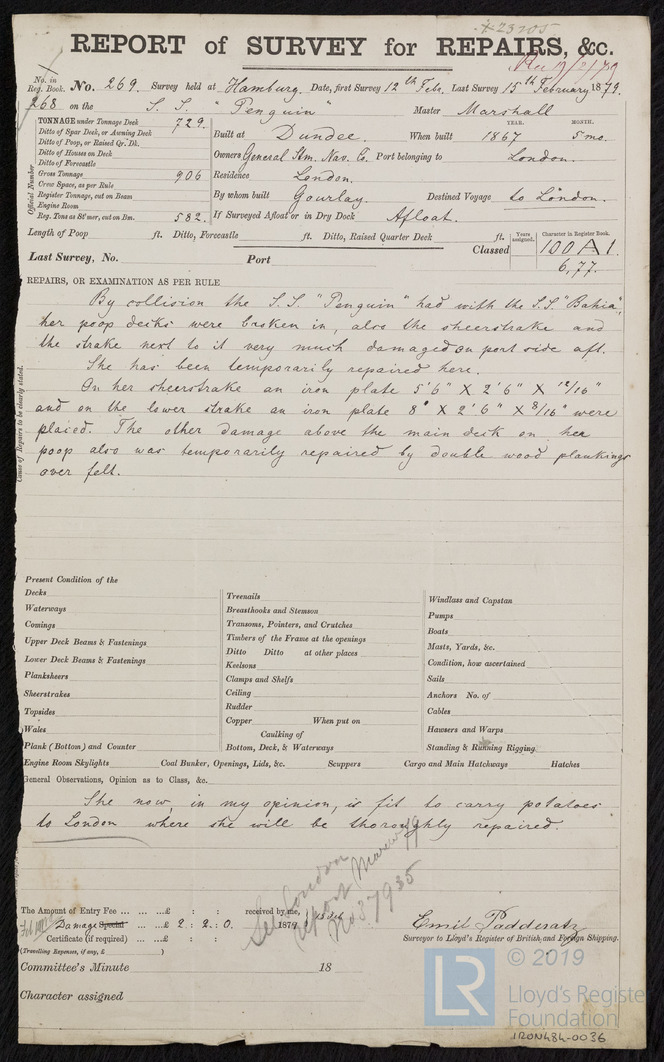 * 23705
REPORT of SURVEY for REPAIRS, &c.
No. in Reg. Book. No. 269. Survey held at Hamburg. Date, first Survey 12th Febr. Last Survey 15th February 1879.
268 on the S. S. "Penguin" Master Marshall
TONNAGE under Tonnage Deck 729.
Ditto of Spar Deck, or Awning Deck
Ditto of Poop, or Raised Qr. Dk.
Ditto of Houses on Deck
Ditto of Forecastle
Gross Tonnage 906
Crew Space, as per Rule
Register Tonnage, cut on Beam
Engine Room
Reg. Tons as St'mer, cut on Bm. 582.
Official Number
YEAR. MONTH.
Built at Dundee. When built 1867 5 mo.
Owners General Stm. Nav. Co. Port belonging to London.
Residence London.
By whom built Gourlay. Destined Voyage to London.
If Surveyed Afloat or in Dry Dock Afloat.
Length of Poop ft. Ditto, Forecastle ft. Ditto, Raised Quarter Deck ft.
Years assigned. Character in Register Book.
Classed 100 A 1.
6,77.
Last Survey, No. Port
REPAIRS, OR EXAMINATION AS PER RULE
Cause of Repairs to be clearly stated.
By collision the S. S. "Penguin" had with the S. S. "Bahia",
her poop decks were broken in, also the sheerstrake and
the strake next to it very much damaged on port side aft.
She has been temporarily repaired here.
On her sheerstrake an iron plate 5'6" X 2'6" X 12/16"
and on the lower strake an iron plate 8" X 2'6" X 8/16" were
placed. The other damage above the main deck on her
poop also was temporarily repaired by double wood plankings
over felt.
Present Condition of the
Decks
Waterways
Comings
Upper Deck Beams & Fastenings
Lower Deck Beams & Fastenings
Planksheers
Sheerstrakes
Topsides
Wales
Plank (Bottom) and Counter
Treenails
Breasthooks and Stemson
Transoms, Pointers, and Crutches
Timbers of the Frame at the openings
Ditto Ditto at other places
Keelsons
Clamps and Shelfs
Ceiling
Rudder
Copper When put on
Caulking of
Bottom, Deck, & Waterways
Windlass and Capstan
Pumps
Boats
Masts, Yards, &c.
Condition, how ascertained
Sails
Anchors No. of
Cables
Hawsers and Warps
Standing & Running Rigging
Engine Room Skylights Coal Bunker, Openings, Lids, &c. Scuppers Cargo and Main Hatchways Hatches
General Observations, Opinion as to Class, &c.
She now, in my opinion, is fit to carry potatoes
to London where she will be thoroughly repaired.
See London
report March 79
No 37935
The Amount of Entry Fee ... ... ...£ : : received by me,
Damage Special ... ...£ 2 : 2 : 0. 187
Certificate (if required) ... ...£ : :
(Travelling Expenses, if any, £ )
Emil Padderatz
Surveyor to Lloyd's Register of British and Foreign Shipping.
Committee's Minute 18
Character assigned
© 2019
LR
Lloyd's Register
Foundation
IRON484-0036